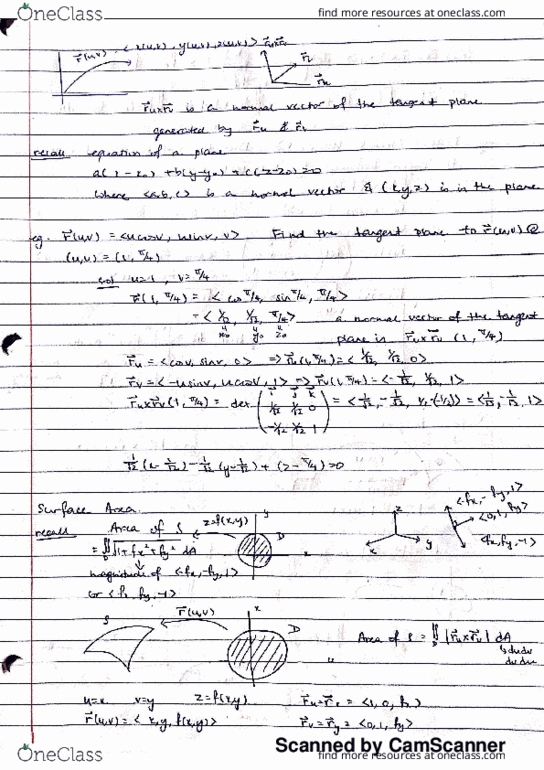 OneClass
find more resources at oneclass.com
r⃗(u,v) = < x(u,v), y(u,v), z(u,v) >
r⃗u×r⃗v
r⃗v
r⃗u
r⃗u×r⃗v is a normal vector of the tangent plane
generated by r⃗u & r⃗v
recall equation of a plane
a(x-x0) + b(y-y0) + c(z-z0) = 0
where <a,b,c> is a normal vector & (x,y,z) is in the plane
eg. r⃗(u,v) = <ucosv, usinv, v> Find the tangent plane to r⃗(u,v) @
(u,v) = (1, π/4)
sol u=1, v=π/4
r⃗(1, π/4) = < cos π/4, sin π/4, π/4 >
= < 1/√2, 1/√2, π/4 > a normal vector of the tangent
x0 y0 z0 plane is r⃗u×r⃗v (1, π/4)
r⃗u = <cosv, sinv, 0> => r⃗u(1, π/4) = < 1/√2, 1/√2, 0>
r⃗v = <-usinv, ucosv, 1> => r⃗v(1, π/4) = <-1/√2, 1/√2, 1>
r⃗u×r⃗v(1, π/4) = det
i j k
1/√2 1/√2 0
-1/√2 1/√2 1
= <1/√2, -1/√2, ½-(-½)> = <1/√2, -1/√2, 1>
1/√2 (x-1/√2) - 1/√2 (y-1/√2) + (z-π/4) = 0
Surface Area
recall Area of S
z=f(x,y)
y
D
x
z
y
x
<-fx, -fy, 1>
<0, 1, fy>
<fx, fy, -1>
= ∬D √1+fx²+fy² dA
magnitude of <-fx, -fy, 1>
or <fx, fy, -1>
S
r⃗(u,v)
x
D
u
Area of S = ∬D |r⃗u×r⃗v| dA
dudv
dvdu
u=x v=y z=f(x,y) r⃗u=r⃗x = <1, 0, fx>
r⃗(u,v) = < x, y, f(x,y)> r⃗v=r⃗y = <0, 1, fy>
Scanned by CamScanner
OneClass
find more resources at oneclass.com